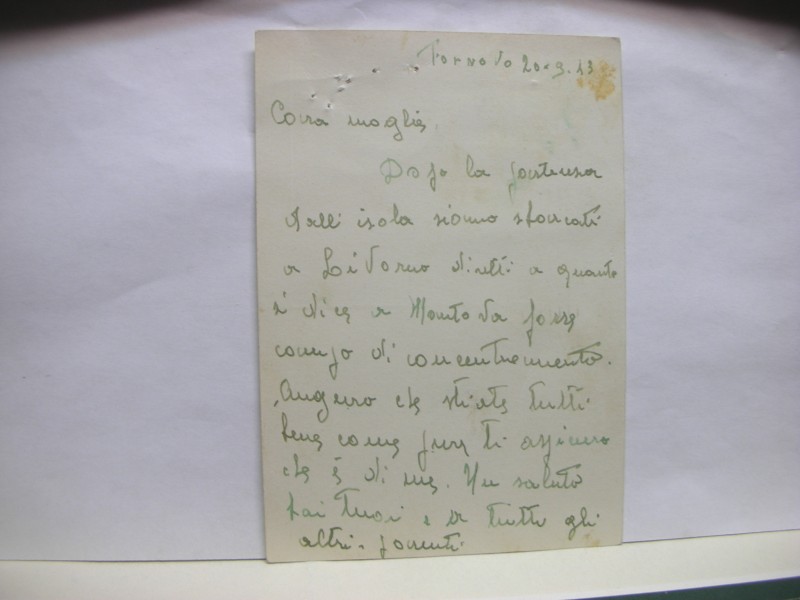 Fornovo 20-9-43
Cara moglie,
Dopo la partenza
dall'isola siamo sbarcati
a Livorno diretti a quanto
si dice a Mantova forse
campo di concentramento.
Auguro che stiate tutti
bene come pure ti assicuro
che è di me. Un saluto
ai tuoi e a tutti gli
altri parenti